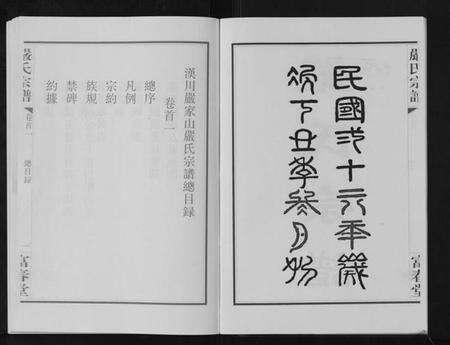 嚴氏宗譜
富春堂
民國弍十六年歲
次丁丑季月
漢川嚴家山嚴氏宗譜總目録
卷首一
總序
凡例
宗約
族規
禁碑
約據
嚴氏宗譜
卷首一
總目録
一
富春堂